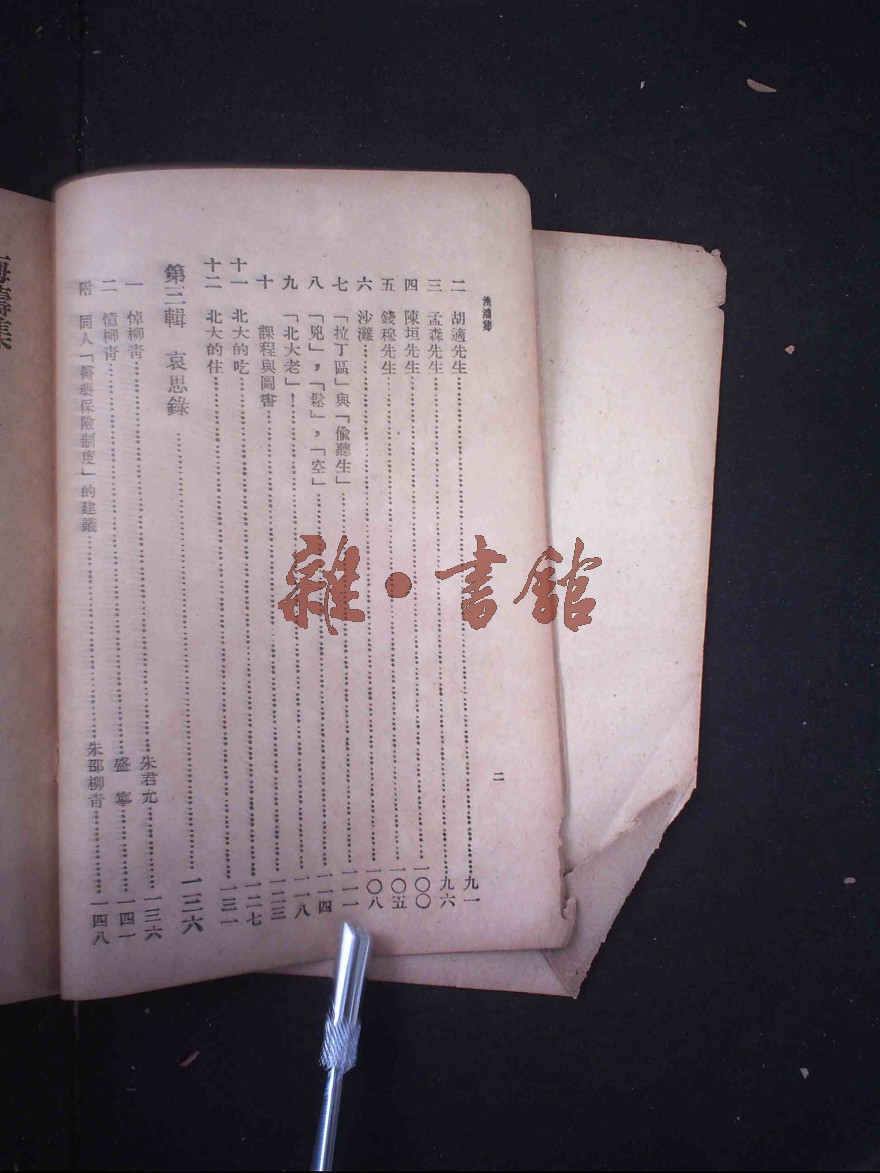 海濤集
二　胡適先生………九一
三　孟森先生………九六
四　陳垣先生………一〇〇
五　錢穆先生………一〇五
六　沙灘………一〇八
七　「拉丁區」與「偸聽生」………一一一
八　「兇」，「鬆」，「空」………一一四
九　「北大老」！………一一八
十　課程與圖書………一二三
十一　北大的吃………一二七
十二　北大的住………一三一
第三輯　哀思錄………一三六
一　悼柳靑………朱君允………一三六
二　憶柳靑………盛　寧………一四一
附　同人「醫藥保險制度」的建議………朱邵柳靑………一四八
二
海濤集
雜·書館